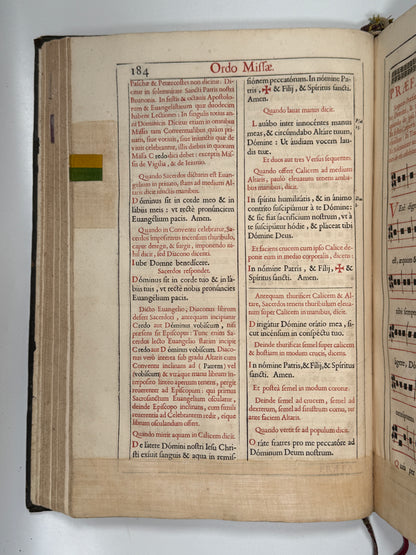 184
Ordo Missæ.
Paschæ & Pentecostes non dicitur. Di-
citur in solemnitate Sancti Patris nostri
In festis & octavis Apostolo-
rum & Evangelistarum quæ duodecim
habent Lectiones: In singulis totius an-
ni Dominicis
Missa tam Conventuali quàm priva-
de
velit celebrantur, illis diebus in quibus
Missa Credo dici debet: exceptis Missis
de Vigilia, & de Ieiunio.
Quando Sacerdos dicturus est Evan-
gelium in privato, stans ad medium Al-
taris inclinatus dicit.
Dóminus sit in corde meo & in
lábiis meis: vt rectè pronúnciem
Evangélium pacis.
Quando in Conventu celebratur, Sa-
cerdos imposturus incensum thuribulo,
caput detegit, & surgit, imponendo ni-
hil dicit, sed Diacono dicenti.
Iube Domne benedicere.
Sacerdos respondet.
Dóminus sit in corde tuo & in lá-
biis tuis, vt rectè nobis pronúncies
Evangélium pacis.
Dicto Evangelio, Diaconus librum
defert Sacerdoti, antequam incipiatur
Credo aut Dóminus vobiscum, nisi
præsens sit Episcopus: Tunc enim Mi-
nister lecto Evangelio statim incipit
Credo aut Dóminus vobiscum. Diaco-
nus verò interea sub gradu Altaris cum
Conventu inclinans ad (Patrem) vel
(vobiscum & vtráque manu librum
de-
inde Episcopo inclinans, cum simili
reverentia ad Celebrantem redit, eique
librum osculandum offert.
Quando mittit aquam in Calicem dicit.
De látere Dómini nostri Iesu Chri-
sti exívit sanguis & aqua in remis-
siónem peccatórum. In nómine Pa-
tris, ✠ & Fílij, & Spíritus sancti.
Amen.
Quando lavat manus dicit.
Lavábo inter innocéntes manus
meas, & circúmdabo Altáre tuum,
Dómine: Ut áudiam vocem lau-
dis tuæ.
Et duos aut tres Versus sequentes.
Quando offert Calicem ad medium
Altaris, paulo elevatum tenens ambabus
manibus, dicit.
In spíritu humilitátis, & in ánimo
contríto suscipiámur à te Dómine:
& sic fiat sacrifícium nostrum, vt à
te suscipiátur hódie, & pláceat tibi
Dómine Deus.
Et faciens crucem cum ipso Calice de-
ponit eum in medio corporalis, dicens.
In nómine Patris, & Fílij, ✠ &
Spíritus sancti. Amen.
Antequam thurificet Calicem & Al-
tare, Sacerdos tenens thuribulum elevat-
um ante Calicem, dicit.
Dirigátur Dómine orátio mea, si-
cut incénsum in conspéctu tuo.
Deinde thurificat semel super Calicem
in modum crucis, dicens.
In nómine Patris, & Fílij, & Spíritus
sancti. Amen.
Et postea semel in modum coronæ.
Deinde semel ad crucem, semel ad
dexterum, semel ad sinistrum cornu, ter
ante faciem Altaris.
Quando vertit se ad populum dicit.
Oráte fratres pro me peccatóre ad
Dóminum Deum nostrum.